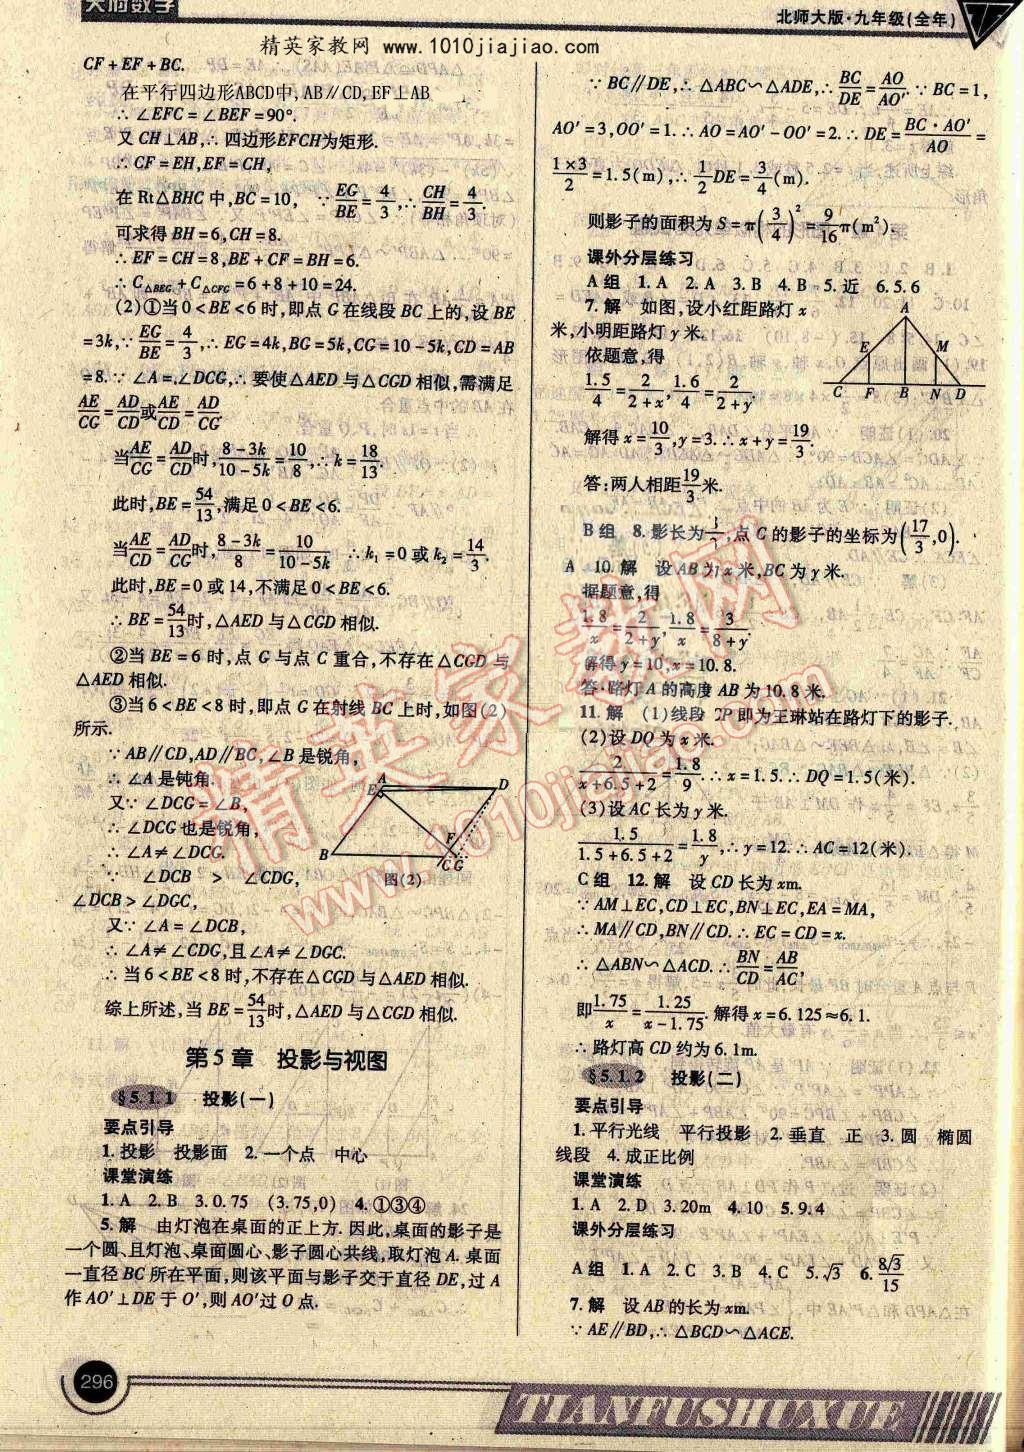 天府数学
北师大版·九年级(全年)
精英家教网 www.1010jiajiao.com
CF+EF+BC.
在平行四边形ABCD中, AB∥CD, EF⊥AB
∴∠EFC=∠BEF=90°.
又CH⊥AB,∴四边形EFCH为矩形.
∴CF=EH,EF=CH,
在Rt△BHC中,BC=10, ∵EG/BE=4/3,∴CH/BH=4/3.
可求得BH=6,CH=8.
∴EF=CH=8,BE+CF=BH=6.
∴C△BEG+C△CFG=6+8+10=24.
(2)①当0<BE<6时,即点G在线段BC上的,设BE
=3k,∵EG/BE=4/3,∴EG=4k,BG=5k,CG=10-5k,CD=AB
=8.∵∠A=∠DCG,∴要使△AED与△CGD相似,需满足
AE/CG=AD/CD或AE/CD=AD/CG
当AE/CG=AD/CD时,(8-3k)/(10-5k)=10/8,∴k=18/13
此时,BE=54/13,满足0<BE<6.
当AE/CD=AD/CG时,(8-3k)/8=10/(10-5k) ∴k₁=0或k₂=14/3.
此时,BE=0或14,不满足0<BE<6.
∴BE=54/13时,△AED与△CGD相似.
②当BE=6时,点G与点C重合,不存在△CGD与
△AED相似.
③当6<BE<8时,即点G在射线BC上时,如图(2)
所示.
∵AB∥CD,AD∥BC,∠B是锐角,
∴∠A是钝角.
又∵∠DCG=∠B,
∴∠DCG也是锐角,
∴∠A≠∠DCG.
∵ ∠DCB > ∠CDG,
∠DCB>∠DGC,
A
D
E
F
B
C G
图(2)
又∵∠A=∠DCB,
∴∠A≠∠CDG,且∠A≠∠DGC.
∴当6<BE<8时,不存在△CGD与△AED相似.
综上所述,当BE=54/13时,△AED与△CGD相似.
第5章 投影与视图
§5.1.1 投影(一)
要点引导
1.投影 投影面 2.一个点 中心
课堂演练
1.A 2.B 3.0.75 (3.75,0) 4.①③④
5.解 由灯泡在桌面的正上方.因此,桌面的影子是
一个圆、且灯泡、桌面圆心、影子圆心共线,取灯泡A.桌面
一直径BC所在平面,则该平面与影子交于直径DE,过A
作AO'⊥DE于O',则AO'过O点.
∵BC∥DE,∴△ABC∽△ADE,∴BC/DE=AO/AO'.∵BC=1,
AO'=3,OO'=1.∴AO=AO'-OO'=2.∴DE=BC·AO'/AO=
1×3/2=1.5(m),∴1/2DE=3/4(m).
则影子的面积为S=π(3/4)²=9/16π(m²).
课外分层练习
A组 1.A 2.A 3.B 4.B 5.近 6.5.6
7.解 如图,设小红距路灯x
米,小明距路灯y米.
依题意,得
1.5/4=2/(2+x),1.6/4=2/(2+y)
A
E
M
C F B N D
解得x=10/3,y=3.∴x+y=19/3.
答:两人相距19/3米.
B组 8.影长为 ,点C的影子的坐标为(17/3,0).
A 10.解 设AB为x米,BC为y米.
据题意,得
1.8/x=2/(2+y),1.8/x=3/(8+y).
解得y=10,x=10.8.
答·路灯A的高度AB为10.8米.
11.解 (1)线段CP即为王琳站在路灯下的影子.
(2)设DQ为x米.
2/(x+6.5+2)=1.8/9.∴x=1.5.∴DQ=1.5(米).
(3)设AC长为y米.
1.5/(1.5+6.5+2)=1.8/y,∴y=12.∴AC=12(米).
C组 12.解 设CD长为xm.
∵AM⊥EC,CD⊥EC,BN⊥EC,EA=MA,
∴MA∥CD,BN∥CD.∴EC=CD=x.
∴△ABN∽△ACD.∴BN/CD=AB/AC,
即1.75/x=1.25/(x-1.75).解得x=6.125≈6.1.
∴路灯高CD约为6.1m.
§5.1.2 投影(二)
要点引导
1.平行光线 平行投影 2.垂直 正 3.圆 椭圆
线段 4.成正比例
课堂演练
1.A 2.D 3.20m 4.10 5.9.4
课外分层练习
A组 1.A 2.C 3.B 4.C 5.√3 6.8√3/15
7.解 设AB的长为xm.
∵AE∥BD,∴△BCD∽△ACE.
精英家教网
www.1010jiajiao.com
296
TIANFUSHUXUE